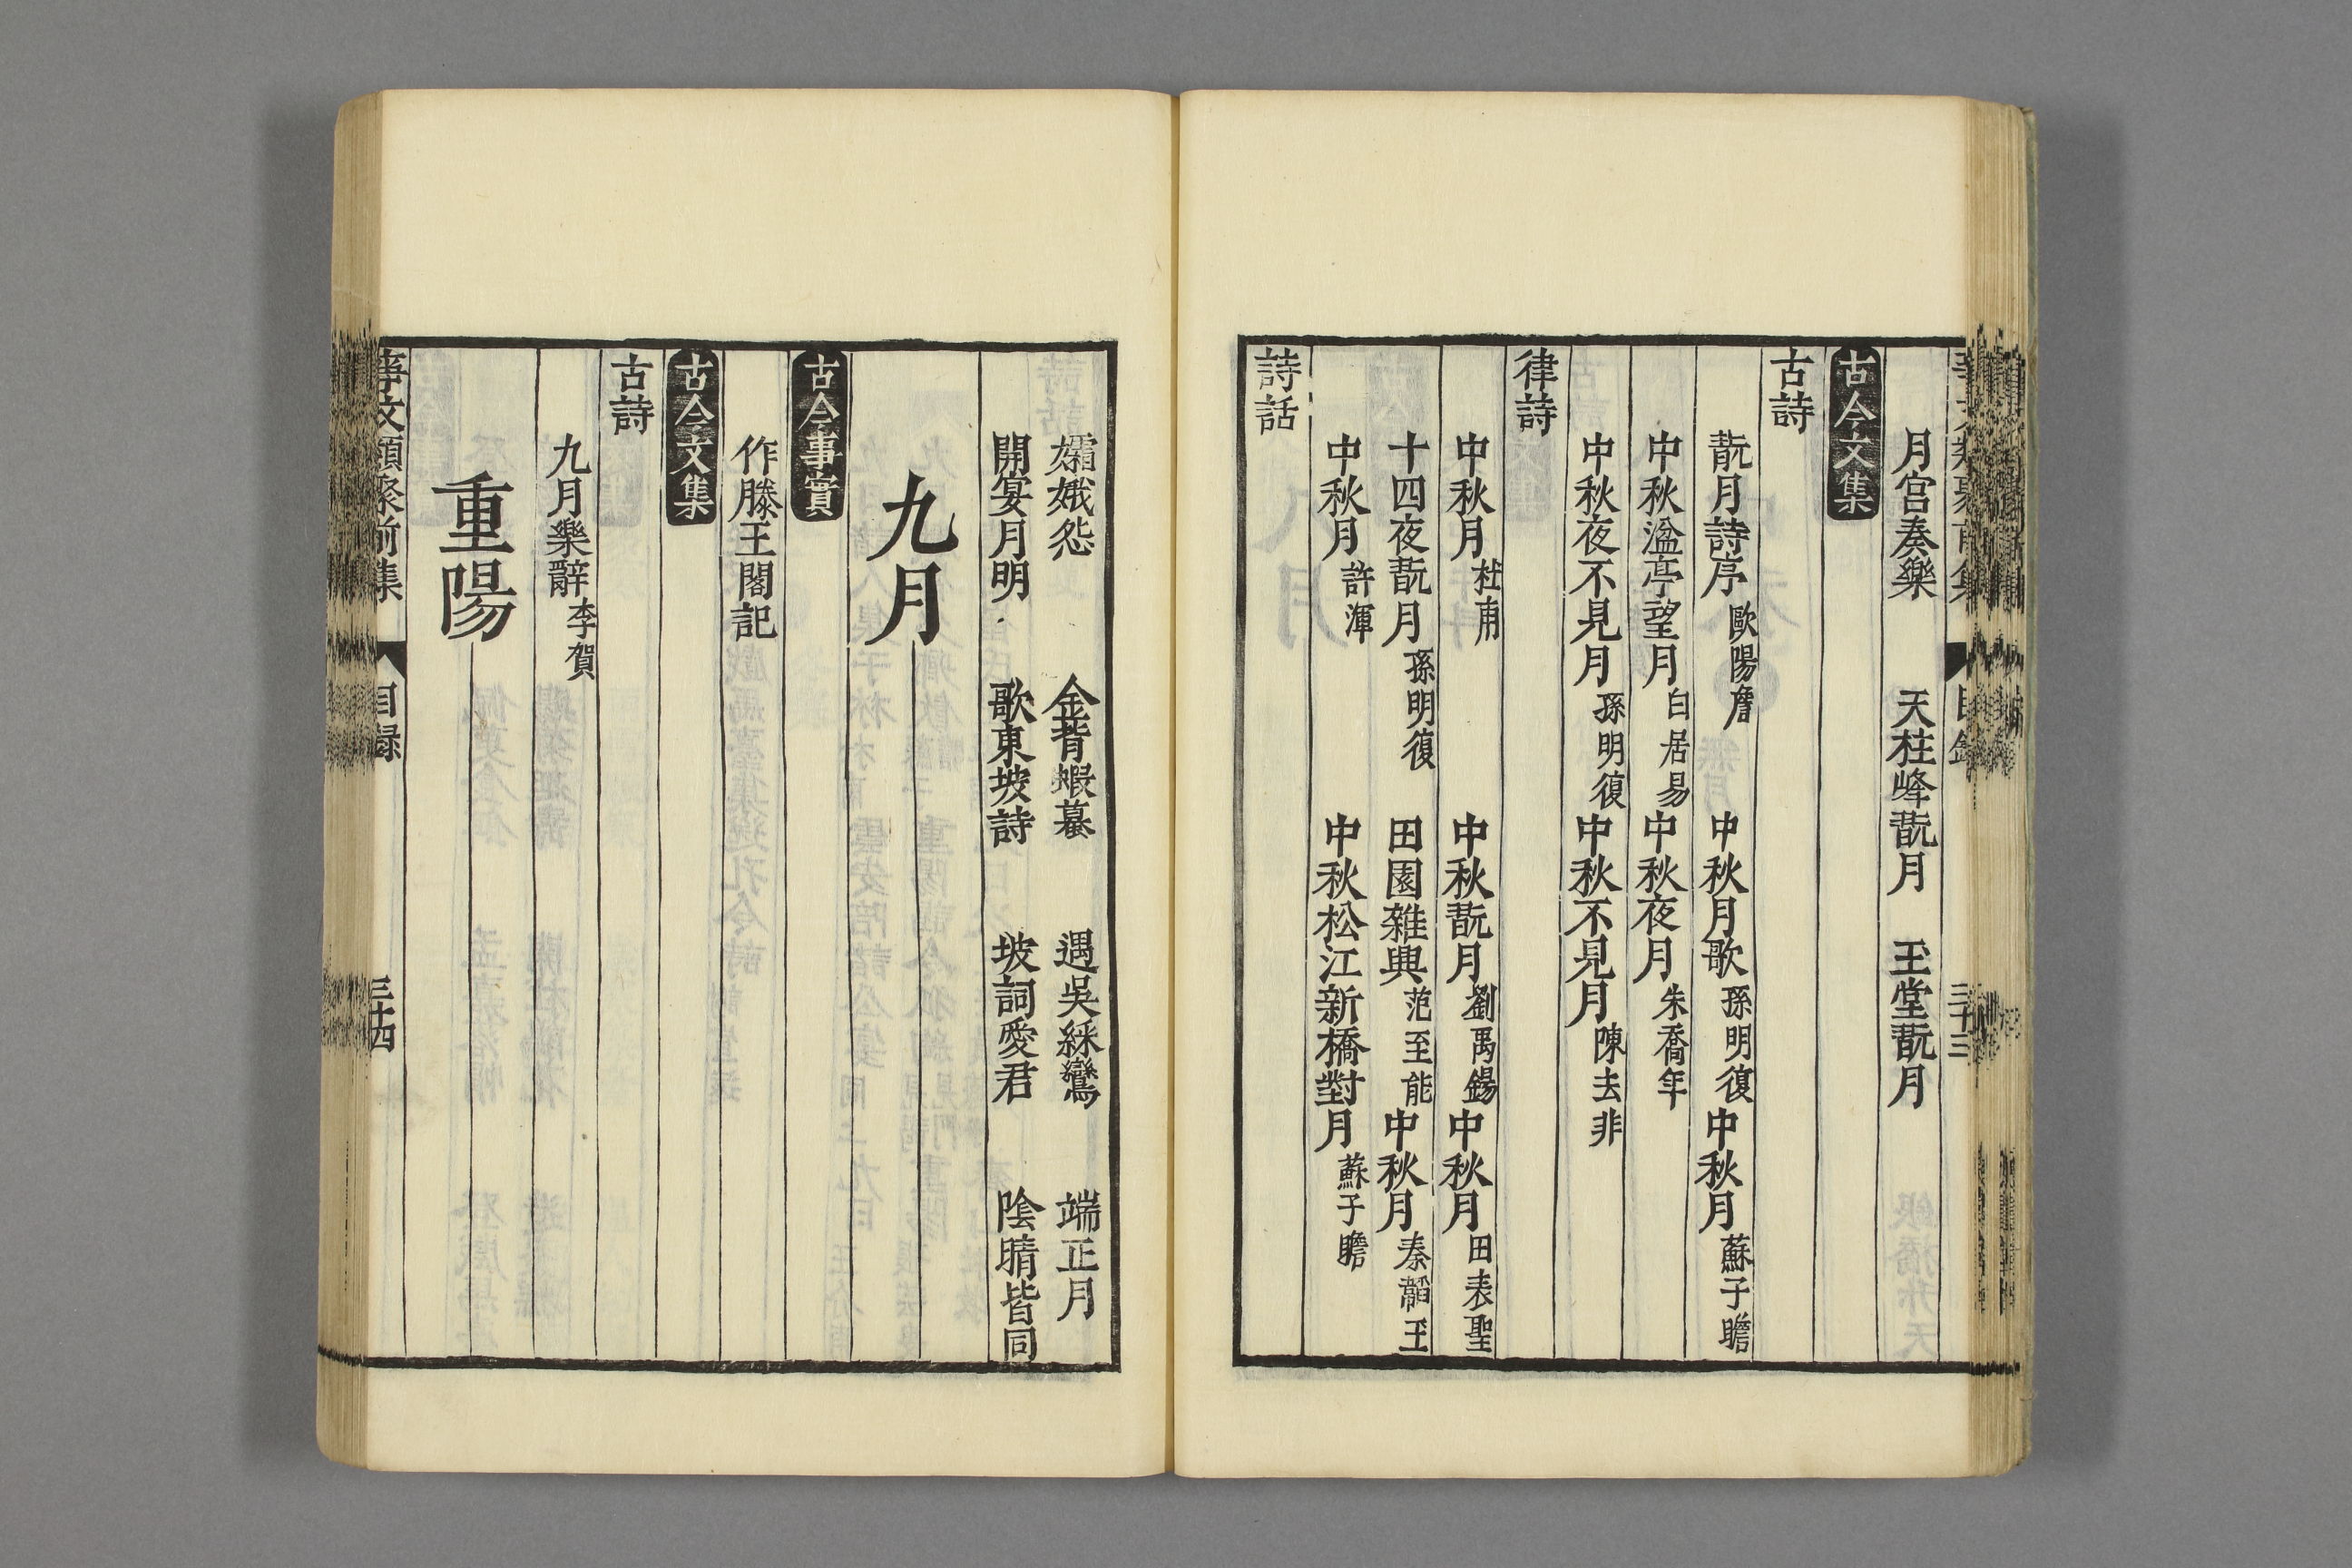 月宮奏樂 天柱峰翫月 玉堂翫月
古今文集
古詩
翫月詩序 歐陽詹 中秋月歌 孫明復 中秋月 蘇子瞻
中秋湓亭望月 白居易 中秋夜月 朱喬年
中秋夜不見月 孫明復 中秋不見月 陳去非
律詩
中秋月 杜甫 中秋翫月 劉禹錫 中秋月 田表聖
十四夜翫月 孫明復 田園雜興 范至能 中秋月 秦韜玉
中秋月 許渾 中秋松江新橋對月 蘇子瞻
詩話
孀娥怨 金背蝦蟇 遇吳綵鸞 端正月
開宴月明 歌東坡詩 坡詞愛君 陰晴皆同
九月
古今事實
作滕王閣記
古今文集
古詩
九月樂辭 李賀
重陽
事文類聚前集 目録 三十四